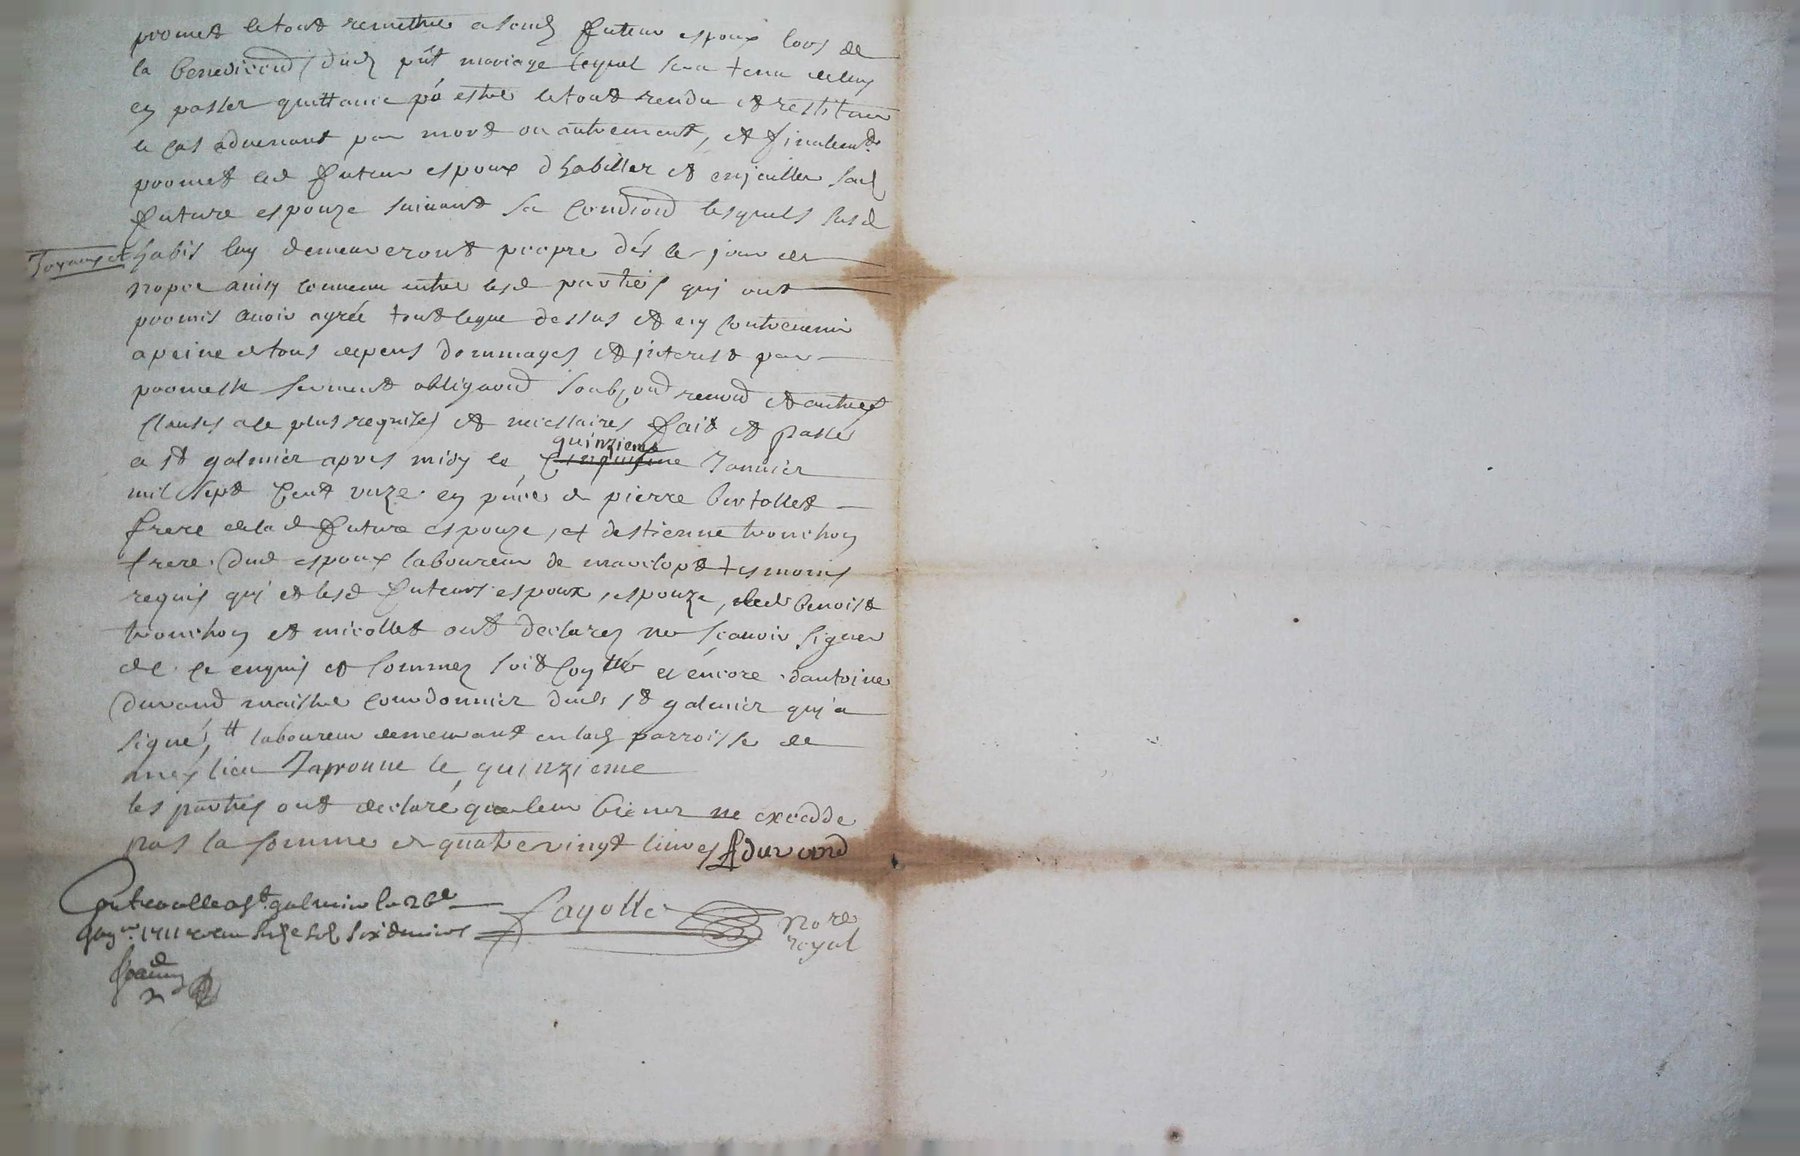 promet letout remettre a sond futeur espoux lors de
la benediction dud pñt mariage lequel sera tenu deluy
en passer quittance po estre letout rendu et restitué
le cas advenant par mort ou autrement, et finalemt
promet led futeur espoux dhabiller et enjoailler sad
future espouze suivant sa condiond lesquels susd
Joyaux et habis luy demeureront propre dés le jour des
nopce ainsy convenu entre lesd parties qui ont
promis avoir agrée toutceque dessus et ny contrevenir
apeine detous depens dommages et interest par
promesse serment obligaond soubzond renond et autres
clauses ale plus requises et necessaires fait et passé
a st galmier apres midy le quinzieme Janvier
mil sept cent unze en pñce de pierre bertollet
frere delad future espouze, et destienne tronchon
frere dud espoux laboureur de tesmoins
requis qui et lesd futeurs espoux, espouze, benoist
tronchon et micollet ont declarez ne scavoir signer
de ce enquis et sommez soit con tt et éncore dantoine
durand maistre courdonnier dud st galmier qui a
signé, tt laboureur demeurant en lad parroisse de
lieu Japronne le quinzieme
les parties ont declaré que leur biener ne excedde
pas la somme de quatrevingt livres Adurand
Controolle a st galmier le 26e
1711 receu seize sols six deniers
Fayolle Nore
royal